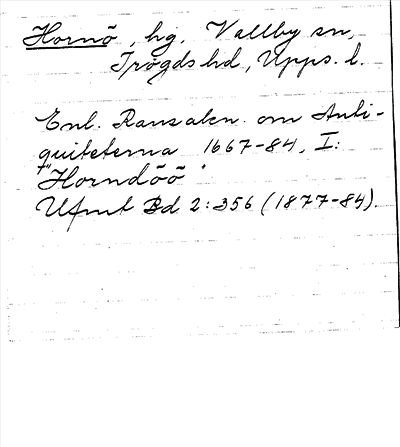 Hornö, hg. Vallby sn,
Trögds hd, Upps. l.
Enl. Ransakn. om Anti-
quiteterna 1667-84, I:
"Horndöö"
Ufmt Bd 2:356 (1877-84).